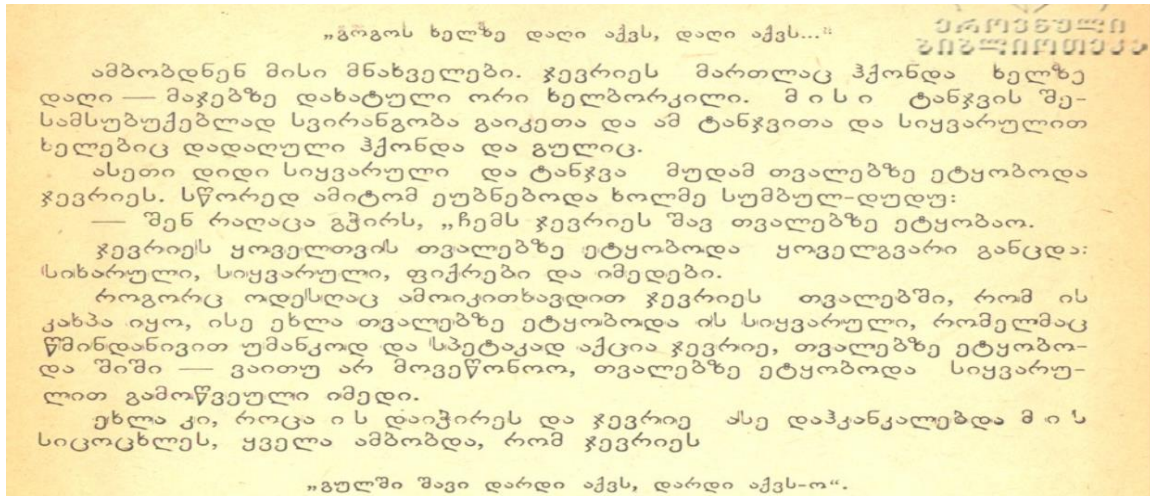 „გოგოს ხელზე დაღი აქვს, დაღი აქვს...“
ამბობდნენ მისი მნახველები. ჯევრიეს მართლაც ჰქონდა ხელზე
დაღი — მაჯებზე დახატული ორი ხელბორკილი. მ ი ს ი ტანჯვის შე-
სამსუბუქებლად სვირანგობა გაიკეთა და ამ ტანჯვითა და სიყვარულით
ხელებიც დადაღული ჰქონდა და გულიც.
ასეთი დიდი სიყვარული და ტანჯვა მუდამ თვალებზე ეტყობოდა
ჯევრიეს. სწორედ ამიტომ ეუბნებოდა ხოლმე სუმბულ-დუდუ:
— შენ რაღაცა გჭირს, „ჩემს ჯევრიეს შავ თვალებზე ეტყობაო.
ჯევრიეს ყოველთვის თვალებზე ეტყობოდა ყოველგვარი განცდა:
სიხარული, სიყვარული, ფიქრები და იმედები.
როგორც ოდესღაც ამოიკითხავდით ჯევრიეს თვალებში, რომ ის
კახპა იყო, ისე ეხლა თვალებზე ეტყობოდა ის სიყვარული, რომელმაც
წმინდანივით უმანკოდ და სპეტაკად აქცია ჯევრიე, თვალებზე ეტყობო-
და შიში — ვაითუ არ მოვეწონოო, თვალებზე ეტყობოდა სიყვარუ-
ლით გამოწვეული იმედი.
ეხლა კი, როცა ი ს დაიჭირეს და ჯევრიე ასე დაჰკანკალებდა მ ი ს
სიცოცხლეს, ყველა ამბობდა, რომ ჯევრიეს
„გულში შავი დარდი აქვს, დარდი აქვს-ო“.